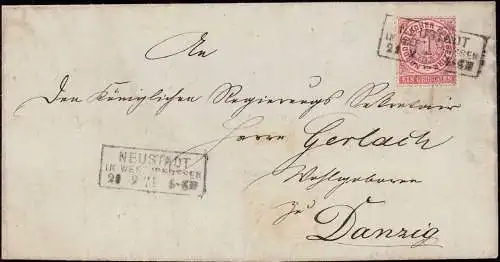 NEUSTADT
IN WESTPREUSSEN
An
Den Königlichen Regierungs Secretair
Herrn Gerlach
Wohlgeboren
zu
Danzig
NEUSTADT
IN WESTPREUSSEN